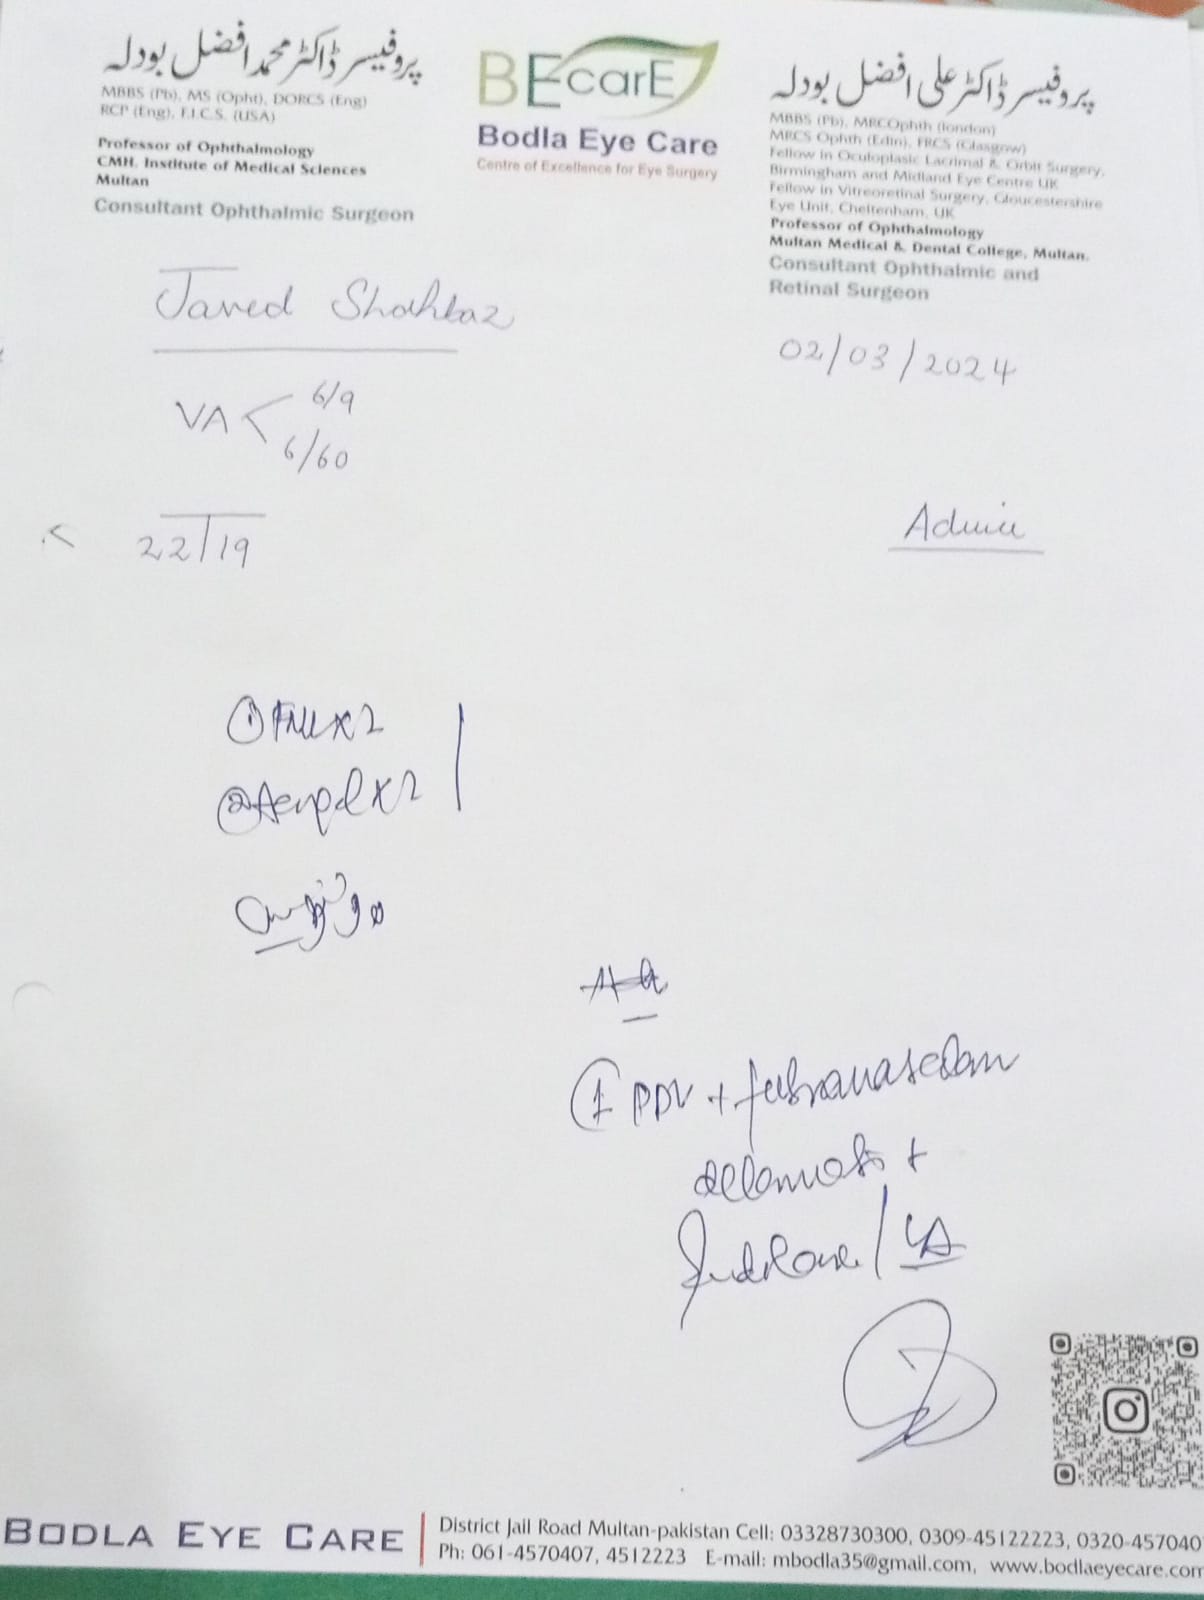 پروفیسر ڈاکٹر محمد افضل بودلہ
MBBS (Pb), MS (Opht), DORCS (Eng)
RCP (Eng), F.I.C.S. (USA)
Professor of Ophthalmology
CMH. Institute of Medical Sciences
Multan
Consultant Ophthalmic Surgeon
BEcarE
Bodla Eye Care
Centre of Excellence for Eye Surgery
پروفیسر ڈاکٹر علی افضل بودلہ
MBBS (Pb), MRCOphth (london)
MRCS Ophth (Edin), FRCS (Glasgow)
Fellow in Oculoplasic Lacrimal & Orbit Surgery,
Birmingham and Midland Eye Centre UK
Fellow in Vitreoretinal Surgery, Gloucestershire
Eye Unit, Cheltenham, UK
Professor of Ophthalmology
Multan Medical & Dental College, Multan.
Consultant Ophthalmic and
Retinal Surgeon
Javed Shahbaz
02/03/2024
VA < 6/9
6/60
22/19
Advice
① x2
② x2
① PPV +
+
/ LA
BODLA EYE CARE
District Jail Road Multan-pakistan Cell: 03328730300, 0309-45122223, 0320-457040
Ph: 061-4570407, 4512223 E-mail: mbodla35@gmail.com, www.bodlaeyecare.com